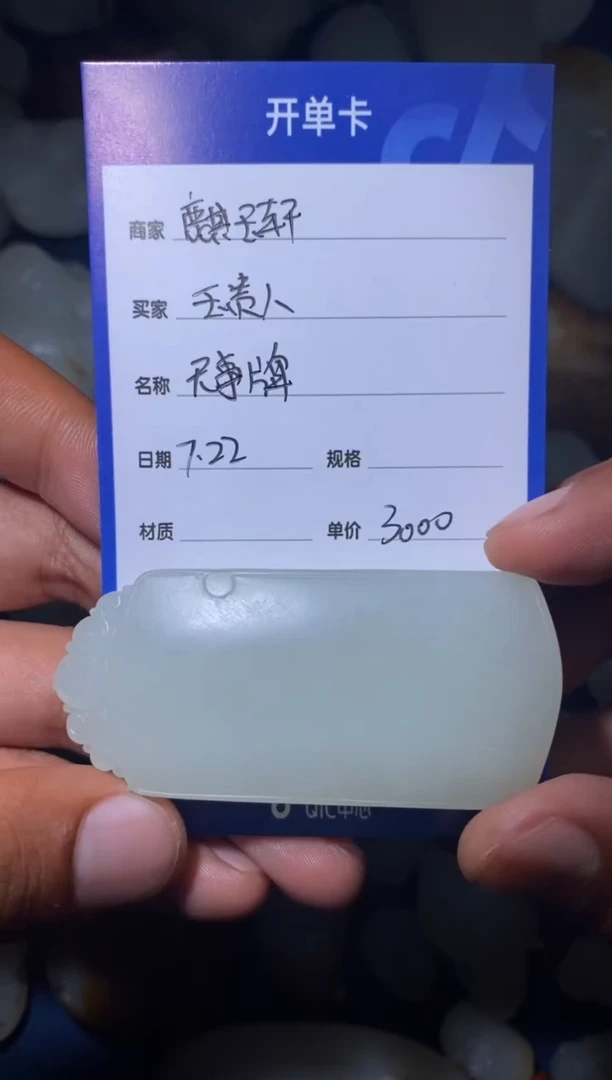 开单卡
商家 麒玉轩
买家 玉贵人
名称 无事牌
日期 7.22 规格
材质 单价 3000
QIC中心